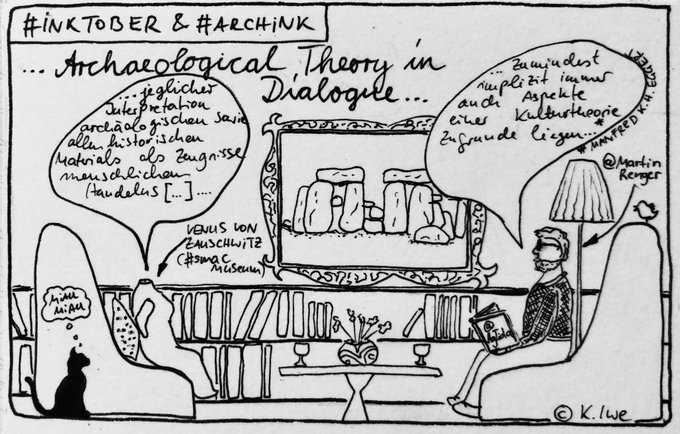 #INKTOBER & #ARCHINK
... Archaeological Theory in
Dialogue ...
... jeglicher
Interpretation
archäologischen sowie
allen historischen
Materials als Zeugnisse
menschlichen
Handelns [...] ....
... Zumindest
implizit immer
auch Aspekte
einer Kulturtheorie
Zugrunde liegen... *
* MANFRED K.H. EGGERT
@Martin
Renger
VENUS VON
ZAUSCHWITZ
(#smac
museum)
MIAU
MIAU
@
© K. Iwe